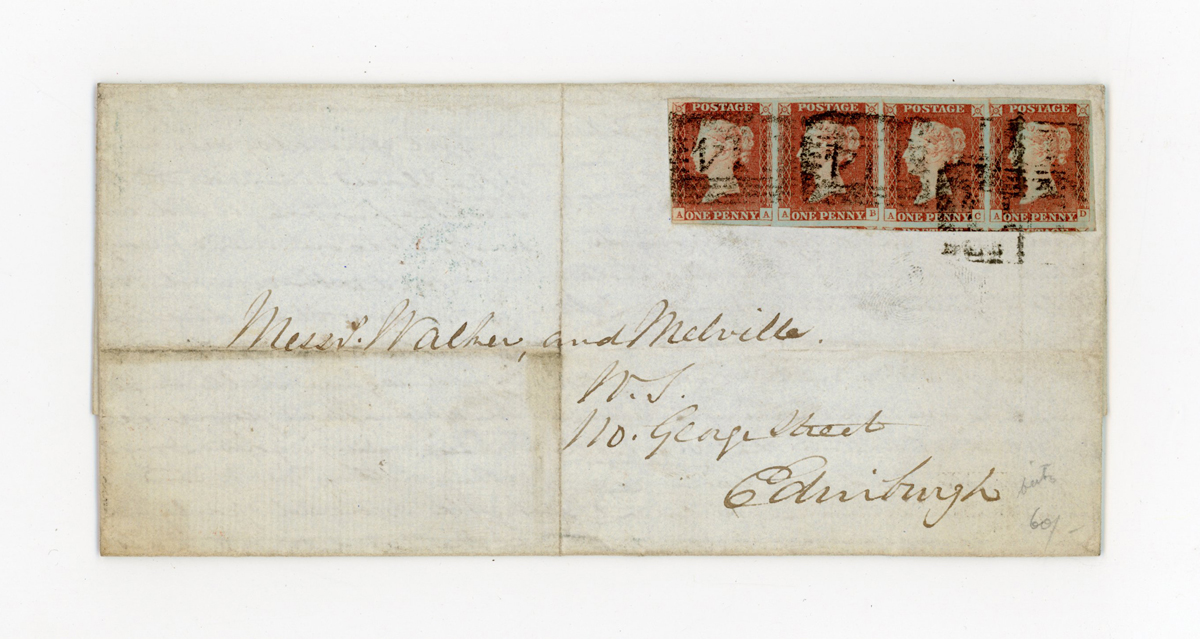 POSTAGE POSTAGE POSTAGE POSTAGE
A ONE PENNY A A ONE PENNY B A ONE PENNY C A ONE PENNY D
Messrs. Walker, and Melville.
W.S.
110. George Street
Edinburgh
60/-